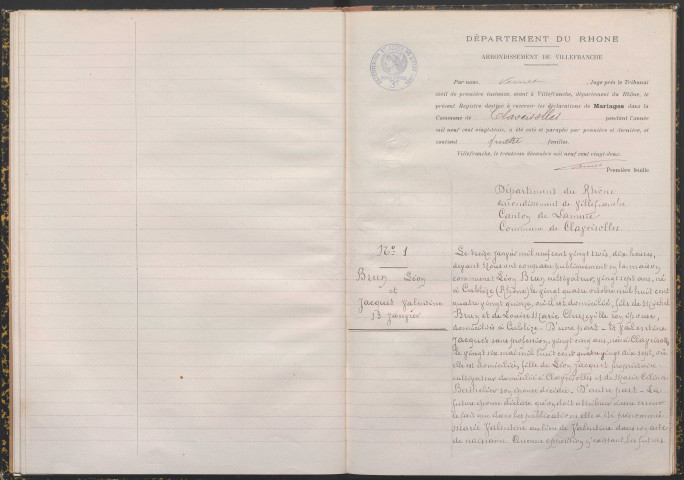 DÉPARTEMENT DU RHONE
ARRONDISSEMENT DE VILLEFRANCHE
Par nous, , Juge près le Tribunal
civil de première instance, séant à Villefranche, département du Rhône, le
présent Registre destiné à recevoir les déclarations de Mariages dans la
Commune de Claveisolles pendant l'année
mil neuf cent vingt-trois, a été coté et paraphé par première et dernière, et
contient quatre feuilles.
Villefranche, le trentième décembre mil neuf cent vingt-deux.
Première feuille
Département du Rhône
arrondissement de Villefranche
Canton de Lamure
Commune de Claveisolles
N° 1
Brun Léon
et
Jacquet Valentine
13 janvier
Le treize janvier mil neuf cent vingt trois, dix heures,
devant Nous ont comparu publiquement en la maison
commune Léon Brun cultivateur, vingt sept ans, né
à Cublize (Rhône) le vingt quatre octobre mil huit cent
quatre vingt quinze, où il est domicilié, fils de
Brun et de Louise Marie son épouse,
domiciliés à Cublize - D'une part - Et Valentine
Jacquet sans profession, vingt cinq ans, née à Claveisolles
le vingt six mai mil huit cent quatre vingt dix sept, où
elle est domiciliée, fille de Léon Jacquet propriétaire
cultivateur domicilié à Claveisolles et de Marie
son épouse décédée - D'autre part - La
future épouse déclare qu'on doit attribuer à une erreur
le fait que dans les publications elle a été prénommée
Marie Valentine au lieu de Valentine dans son acte
de naissance. Aucune opposition n'existant les futurs